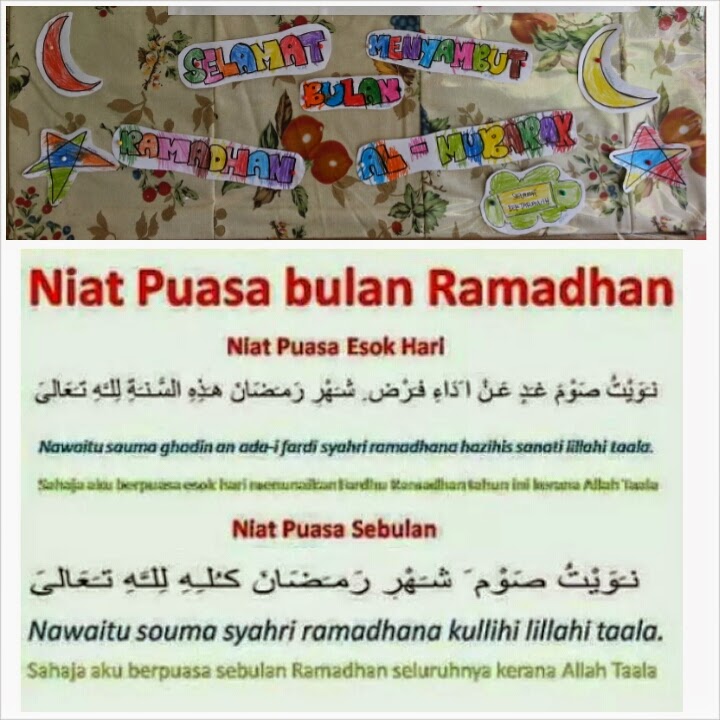 SELAMAT MENYAMBUT
BULAN
RAMADHAN AL-MUBARAK
Niat Puasa bulan Ramadhan
Niat Puasa Esok Hari
نَوَيْتُ صَوْمَ غَدٍ عَنْ اَدَاءِ فَرْضِ شَهْرِ رَمَضَانَ هذِهِ السَّنَةِ لِلّهِ تَعَالىَ
Nawaitu sauma ghadin an ada-i fardi syahri ramadhana hazihis sanati lillahi taala.
Sahaja aku berpuasa esok hari menunaikan Fardhu Ramadhan tahun ini kerana Allah Taala
Niat Puasa Sebulan
نَوَيْتُ صَوْمَ شَهْرِ رَمَضَانَ كُلِّهِ لِلّهِ تَعَالىَ
Nawaitu souma syahri ramadhana kullihi lillahi taala.
Sahaja aku berpuasa sebulan Ramadhan seluruhnya kerana Allah Taala